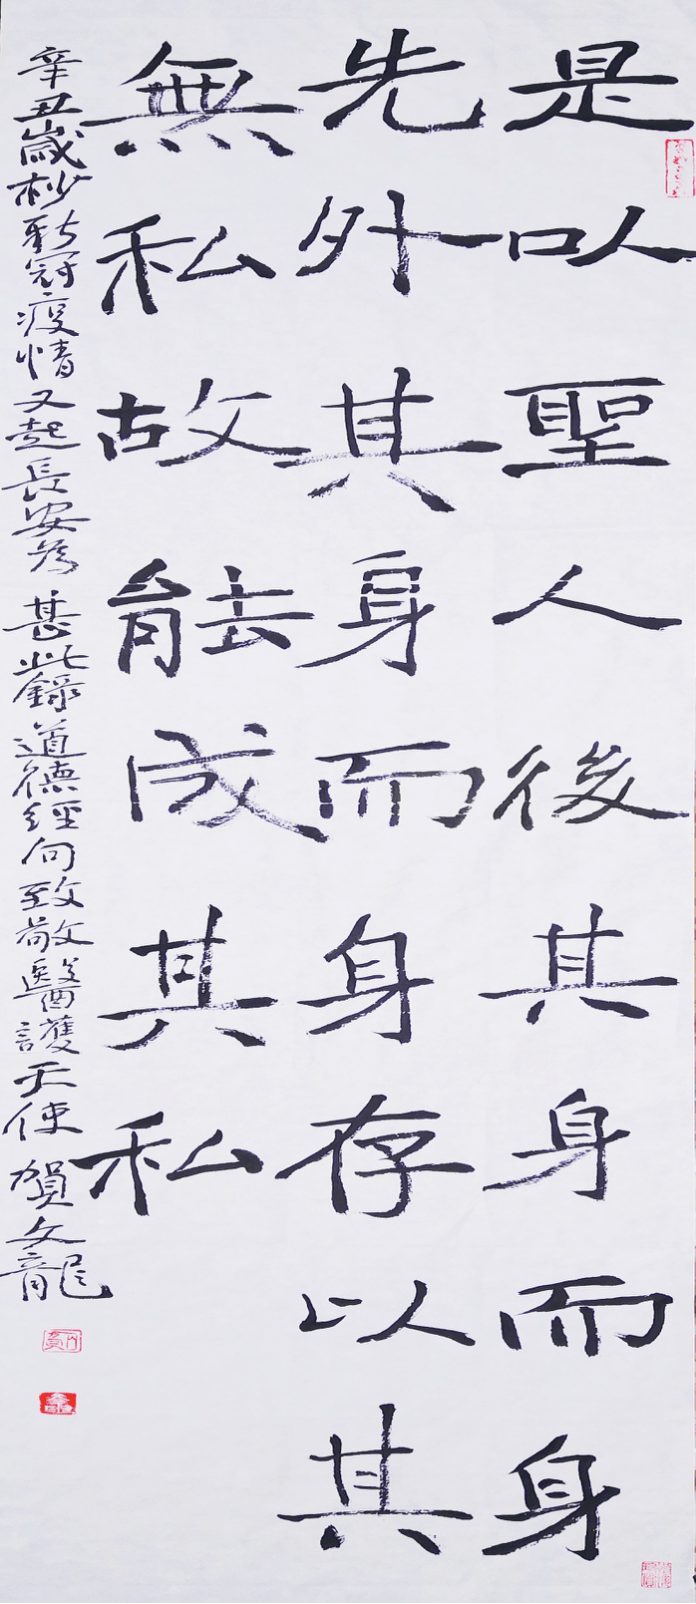 是以聖人後其身而身
先外其身而身存以其
無私故能成其私
辛丑歲杪新冠疫情又起長安為甚此錄道德經向致敬醫護天使賀文龍